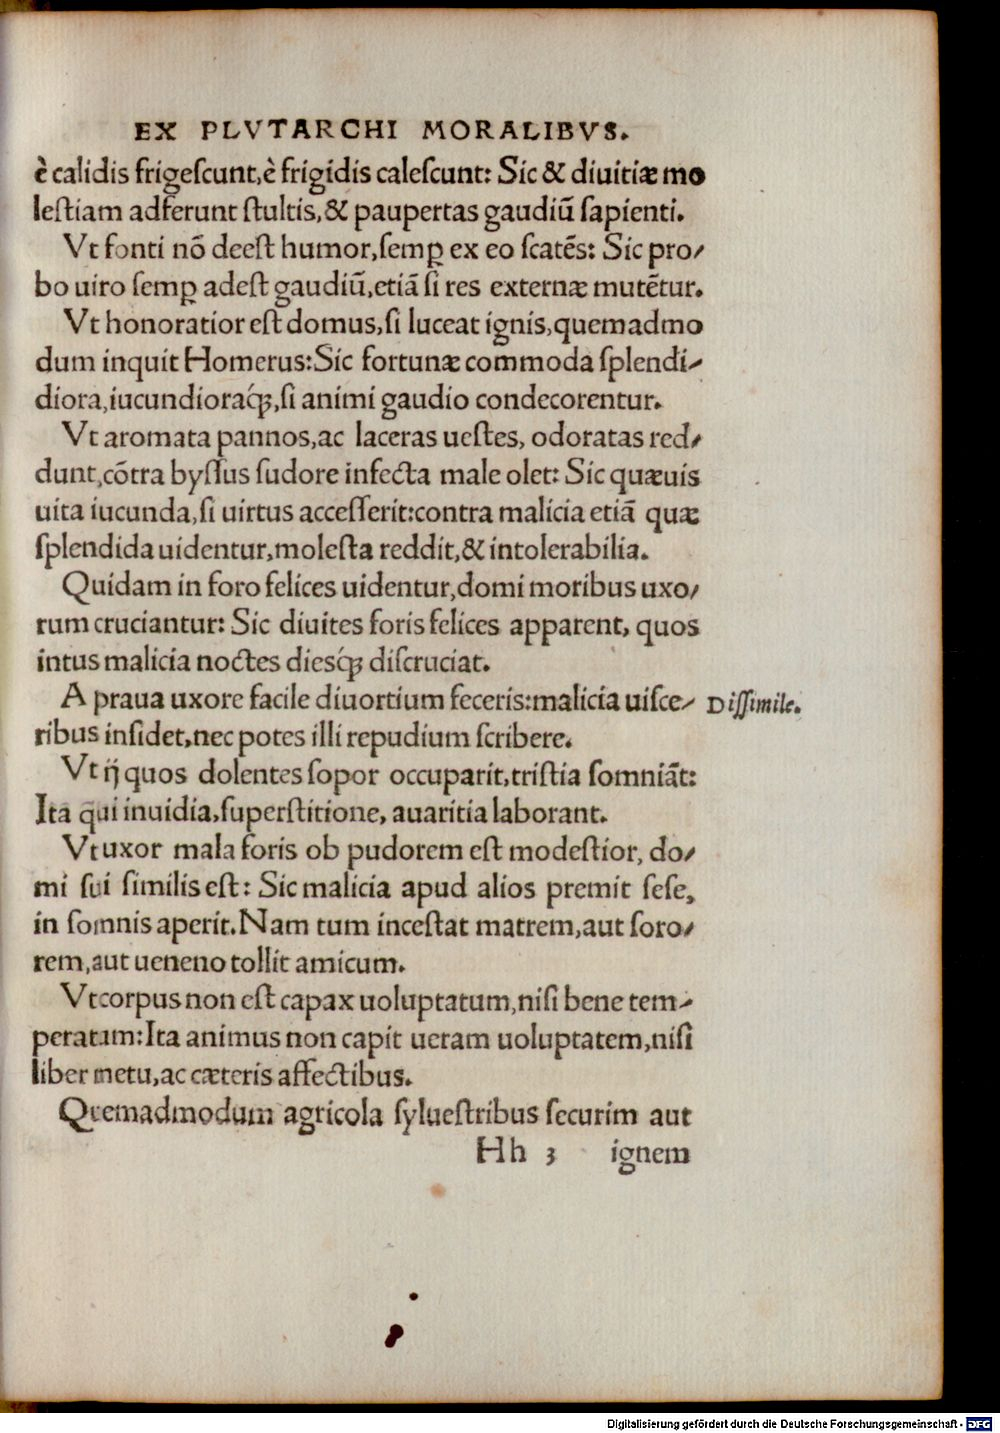 EX PLVTARCHI MORALIBVS.
è calidis frigeſcunt, è frigidis caleſcunt: Sic & diuitiæ mo
leſtiam adferunt ſtultis, & paupertas gaudiũ ſapienti.
Vt fonti nõ deeſt humor, ſemꝑ ex eo ſcatẽs: Sic pro/
bo uiro ſemꝑ adeſt gaudiũ, etiã ſi res externæ mutẽtur.
Vt honoratior eſt domus, ſi luceat ignis, quemadmo
dum inquit Homerus: Sic fortunæ commoda ſplendi/
diora, iucundioraq́ꝫ, ſi animi gaudio condecorentur.
Vt aromata pannos, ac laceras ueſtes, odoratas red/
dunt, cõtra byſſus ſudore infecta male olet: Sic quæuis
uita iucunda, ſi uirtus acceſſerit: contra malicia etiã quæ
ſplendida uidentur, moleſta reddit, & intolerabilia.
Quidam in foro felices uidentur, domi moribus uxo/
rum cruciantur: Sic diuites foris felices apparent, quos
intus malicia noctes dieſq́ꝫ diſcruciat.
A praua uxore facile diuortium feceris: malicia uiſce/ Diſſimile.
ribus inſidet, nec potes illi repudium ſcribere.
Vt ij quos dolentes ſopor occuparit, triſtia ſomniãt:
Ita qui inuidia, ſuperſtitione, auaritia laborant.
Vt uxor mala foris ob pudorem eſt modeſtior, do/
mi ſui ſimilis eſt: Sic malicia apud alios premit ſeſe,
in ſomnis aperit. Nam tum inceſtat matrem, aut ſoro/
rem, aut ueneno tollit amicum.
Vt corpus non eſt capax uoluptatum, niſi bene tem/
peratum: Ita animus non capit ueram uoluptatem, niſi
liber metu, ac cæteris affectibus.
Quemadmodum agricola ſylueſtribus ſecurim aut
Hh 3 ignem
Digitalisierung gefördert durch die Deutsche Forschungsgemeinschaft - DFG